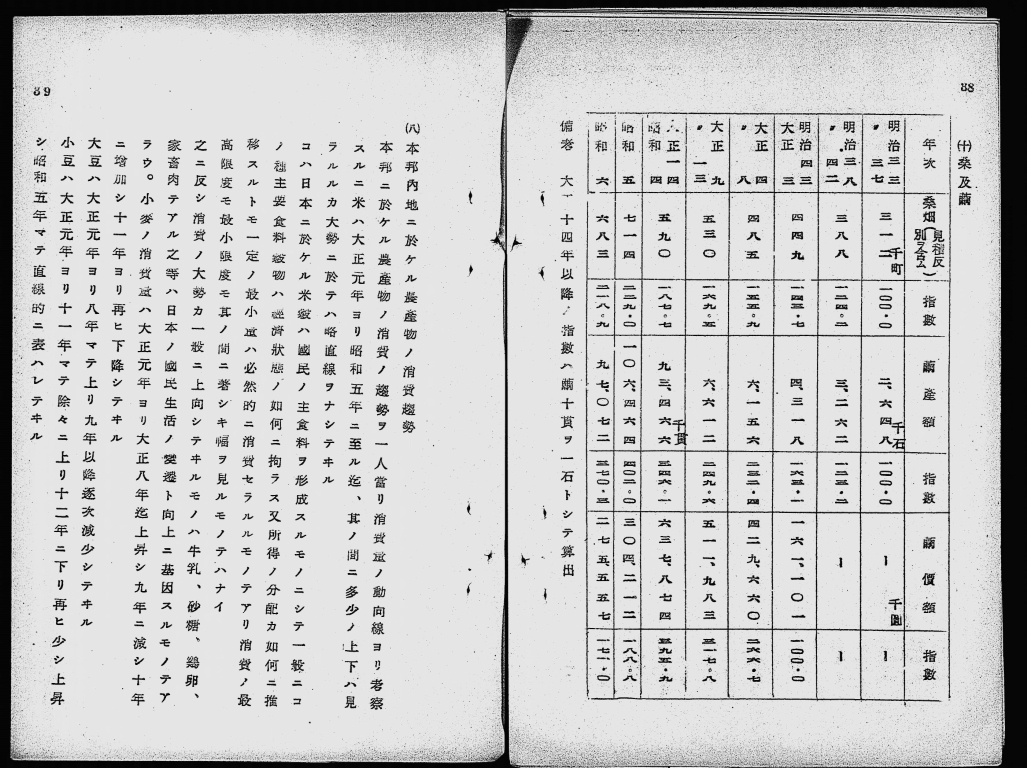 88
㈩桑及繭
年次 桑畑(見積反別ヲ含ム) 指數 繭產額 指數 繭價額 指數
明治三三 〃三七 三一二千町 一〇〇・〇 二、六四八千石 一〇〇・〇 ー千圓 ー
明治三八 〃四二 三八八 一二四・二 三、二六二 一二三・二 ー ー
明治四三 大正三 四四九 一四三・七 四、三一八 一六三・一 一六一、一〇一 一〇〇・〇
大正四 〃八 四八五 一五五・九 六、一五六 二三二・四 四二九、六六〇 二六六・七
大正九 〃一三 五三〇 一六九・五 六、六一二 二四九・六 五一一、九八三 三一七・八
大正一四 昭和四 五九〇 一八七・七 九三、四六六千貫 三四六・一 六三七、八七四 三九五・九
昭和五 七一四 二二九・〇 一〇六、四六四 四〇二・〇 三〇四、二一二 一八八・八
昭和六 六八三 二一八・九 九七、〇七二 三七〇・三 二七五、五五七 一七一・〇
備考 大正十四年以降ノ指數ハ繭十貫ヲ一石トシテ算出
89
㈧本邦內地ニ於ケル農產物ノ消費趨勢
本邦ニ於ケル農產物ノ消費ノ趨勢ヲ一人當リ消費量ノ動向線ヨリ考察
スルニ米ハ大正元年ヨリ昭和五年ニ至ル迄、其ノ間ニ多少ノ上下ハ見
ラルルカ大勢ニ於テハ略直線ヲナシテヰル
コハ日本ニ於ケル米穀ハ國民ノ主食料ヲ形成スルモノニシテ一般ニコ
ノ種主要食料穀物ハ經濟狀態ノ如何ニ拘ラス又所得ノ分配カ如何ニ推
移スルトモ一定ノ最小量ハ必然的ニ消費セラルルモノテアリ消費ノ最
高限度モ最小限度モ其ノ間ニ著シキ幅ヲ見ルモノテハナイ
之ニ反シ消費ノ大勢カ一般ニ上向シテヰルモノハ牛乳、砂糖、鷄卵、
家畜肉テアル之等ハ日本ノ國民生活ノ變遷ト向上ニ基因スルモノテア
ラウ。小麥ノ消費量ハ大正元年ヨリ大正八年迄上昇シ九年ニ減シ十年
ニ增加シ十一年ヨリ再ヒ下降シテヰル
大豆ハ大正元年ヨリ八年マテ上リ九年以降逐次減少シテヰル
小豆ハ大正元年ヨリ十一年マテ除々ニ上リ十二年ニ下リ再ヒ少シ上昇
シ昭和五年マテ直線的ニ表ハレテヰル